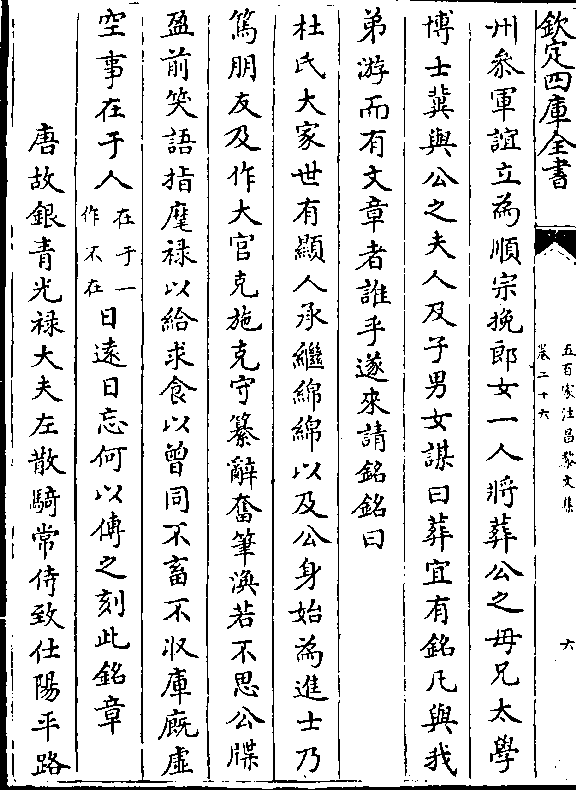 欽定四庫全書
五百家注昌黎文集
卷二十六
六
州參軍誼立為順宗挽郎女一人將葬公之母兄太學
博士冀與公之夫人及子男女謀曰葬宜有銘凡與我
弟游而有文章者誰乎遂來請銘銘曰
杜氏大家世有顯人承繼綿綿以及公身始為進士乃
篤朋友及作大官克施克守纂辭奮筆渙若不思公牒
盈前笑語指麾祿以給求食以曾同不畜不收庫廐虛
空事在于人在于一作不在日遠日忘何以傳之刻此銘章
唐故銀青光祿大夫左散騎常侍致仕陽平路